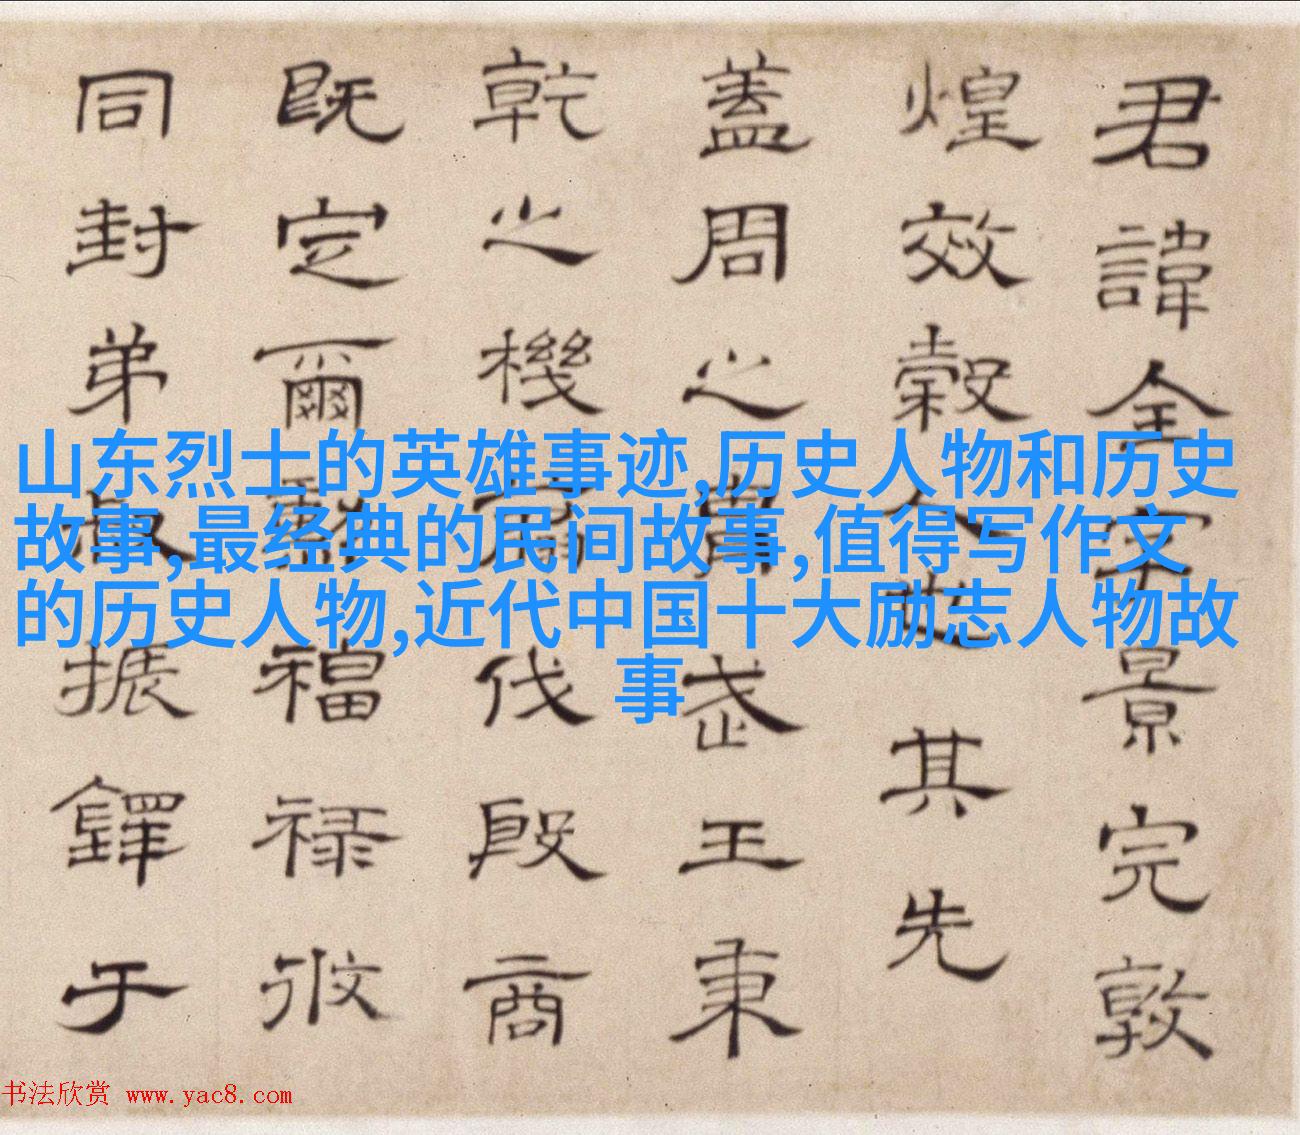 君諱全字景完敦
煌效穀人也其先
蓋周之胄武王秉
乾之機翦伐殷商
既定爾勲福禄攸
同封弟叔振鐸于
山东烈士的英雄事迹,历史人物和历史
故事,最经典的民间故事,值得写作文
的历史人物,近代中国十大励志人物故
事
书法欣赏 www.yac8.com